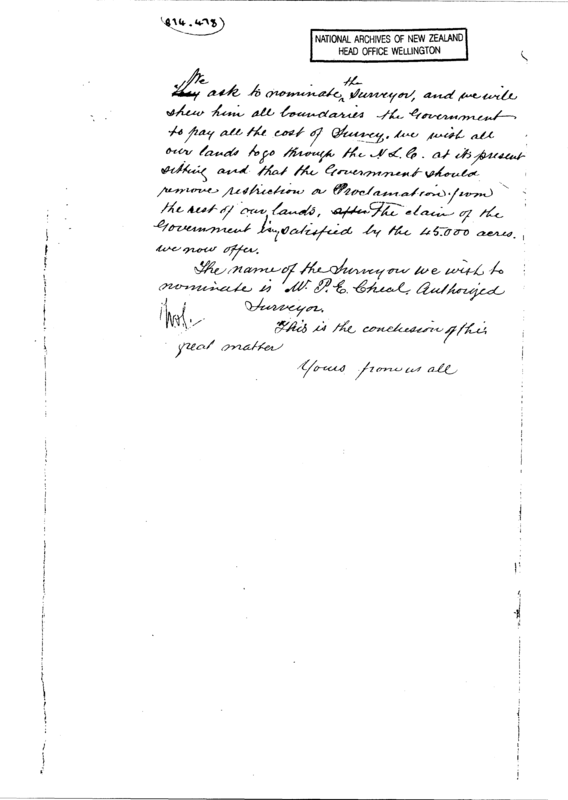 (814.478)
NATIONAL ARCHIVES OF NEW ZEALAND
HEAD OFFICE WELLINGTON
We
ask to nominate the Surveyor, and we will
shew him all boundaries the Government
to pay all the cost of Survey. we wish all
our lands to go through the N.L.Co. at its present
sitting and that the Government should
remove restriction or Proclamation from
the rest of our lands, after The claim of the
Government satisfied by the 45.000 acres.
we now offer.
The name of the Surveyor we wish to
nominate is Mr. P.E. Cheal, Authorized
Surveyor.
This is the conclusion of this
great matter
Yours from us all